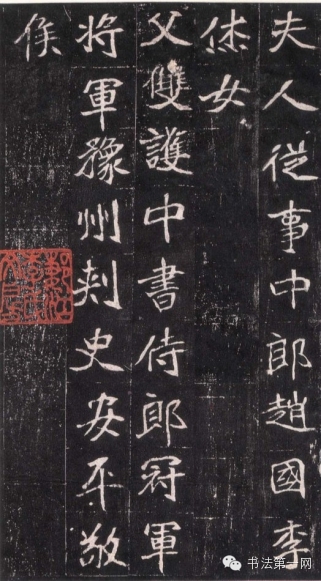 夫人從事中郎趙國李
休女
父雙護中書侍郎冠軍
將軍豫州刾史安平敬
侯
书法第一网